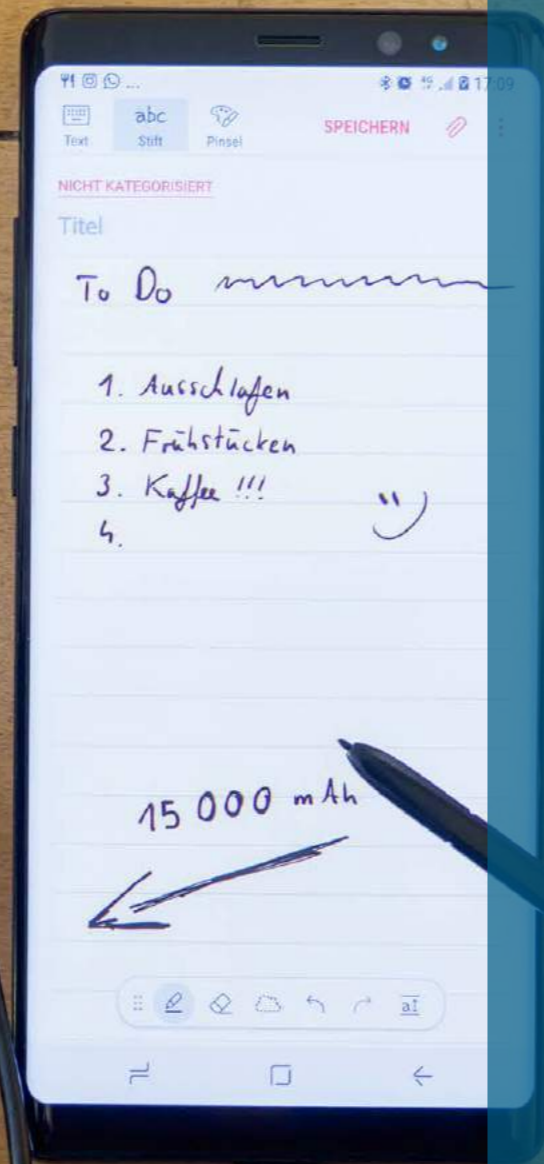 17:09
Text
abc
Stift
Pinsel
SPEICHERN
NICHT KATEGORISIERT
Titel
To Do
1. Ausschlafen
2. Frühstücken
3. Kaffee !!!
4.
15 000 mAh